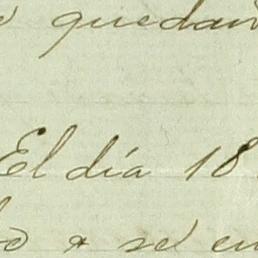 quedan
El día 18
se en